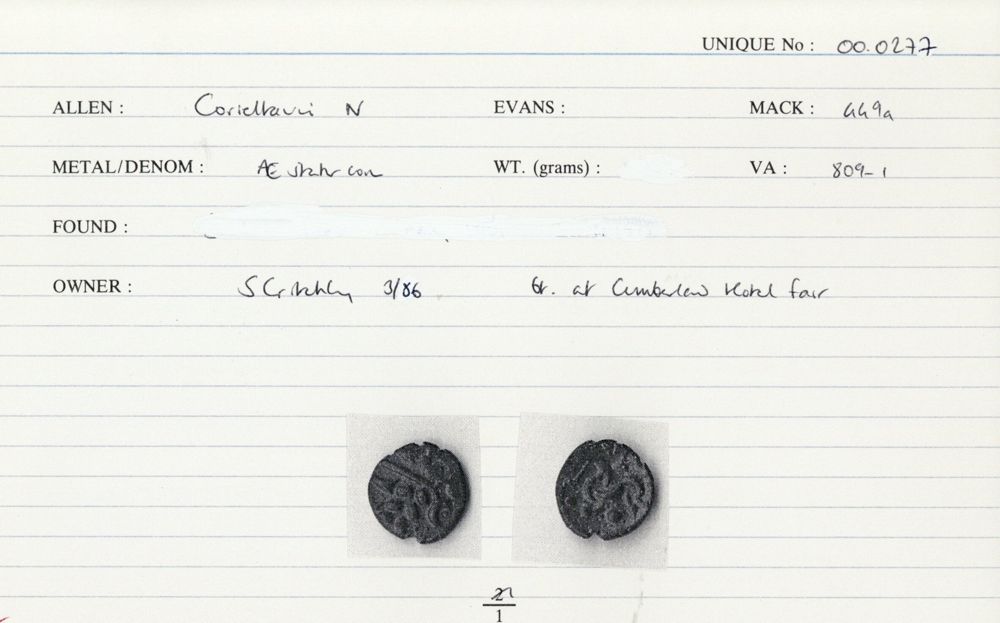 UNIQUE No : 00.0277
ALLEN : Corieltauvi N EVANS : MACK : 449a
METAL/DENOM : Æ stater core WT. (grams) : VA : 809-1
FOUND :
OWNER : S Critchley 3/86 at Cumberland Hotel fair
1